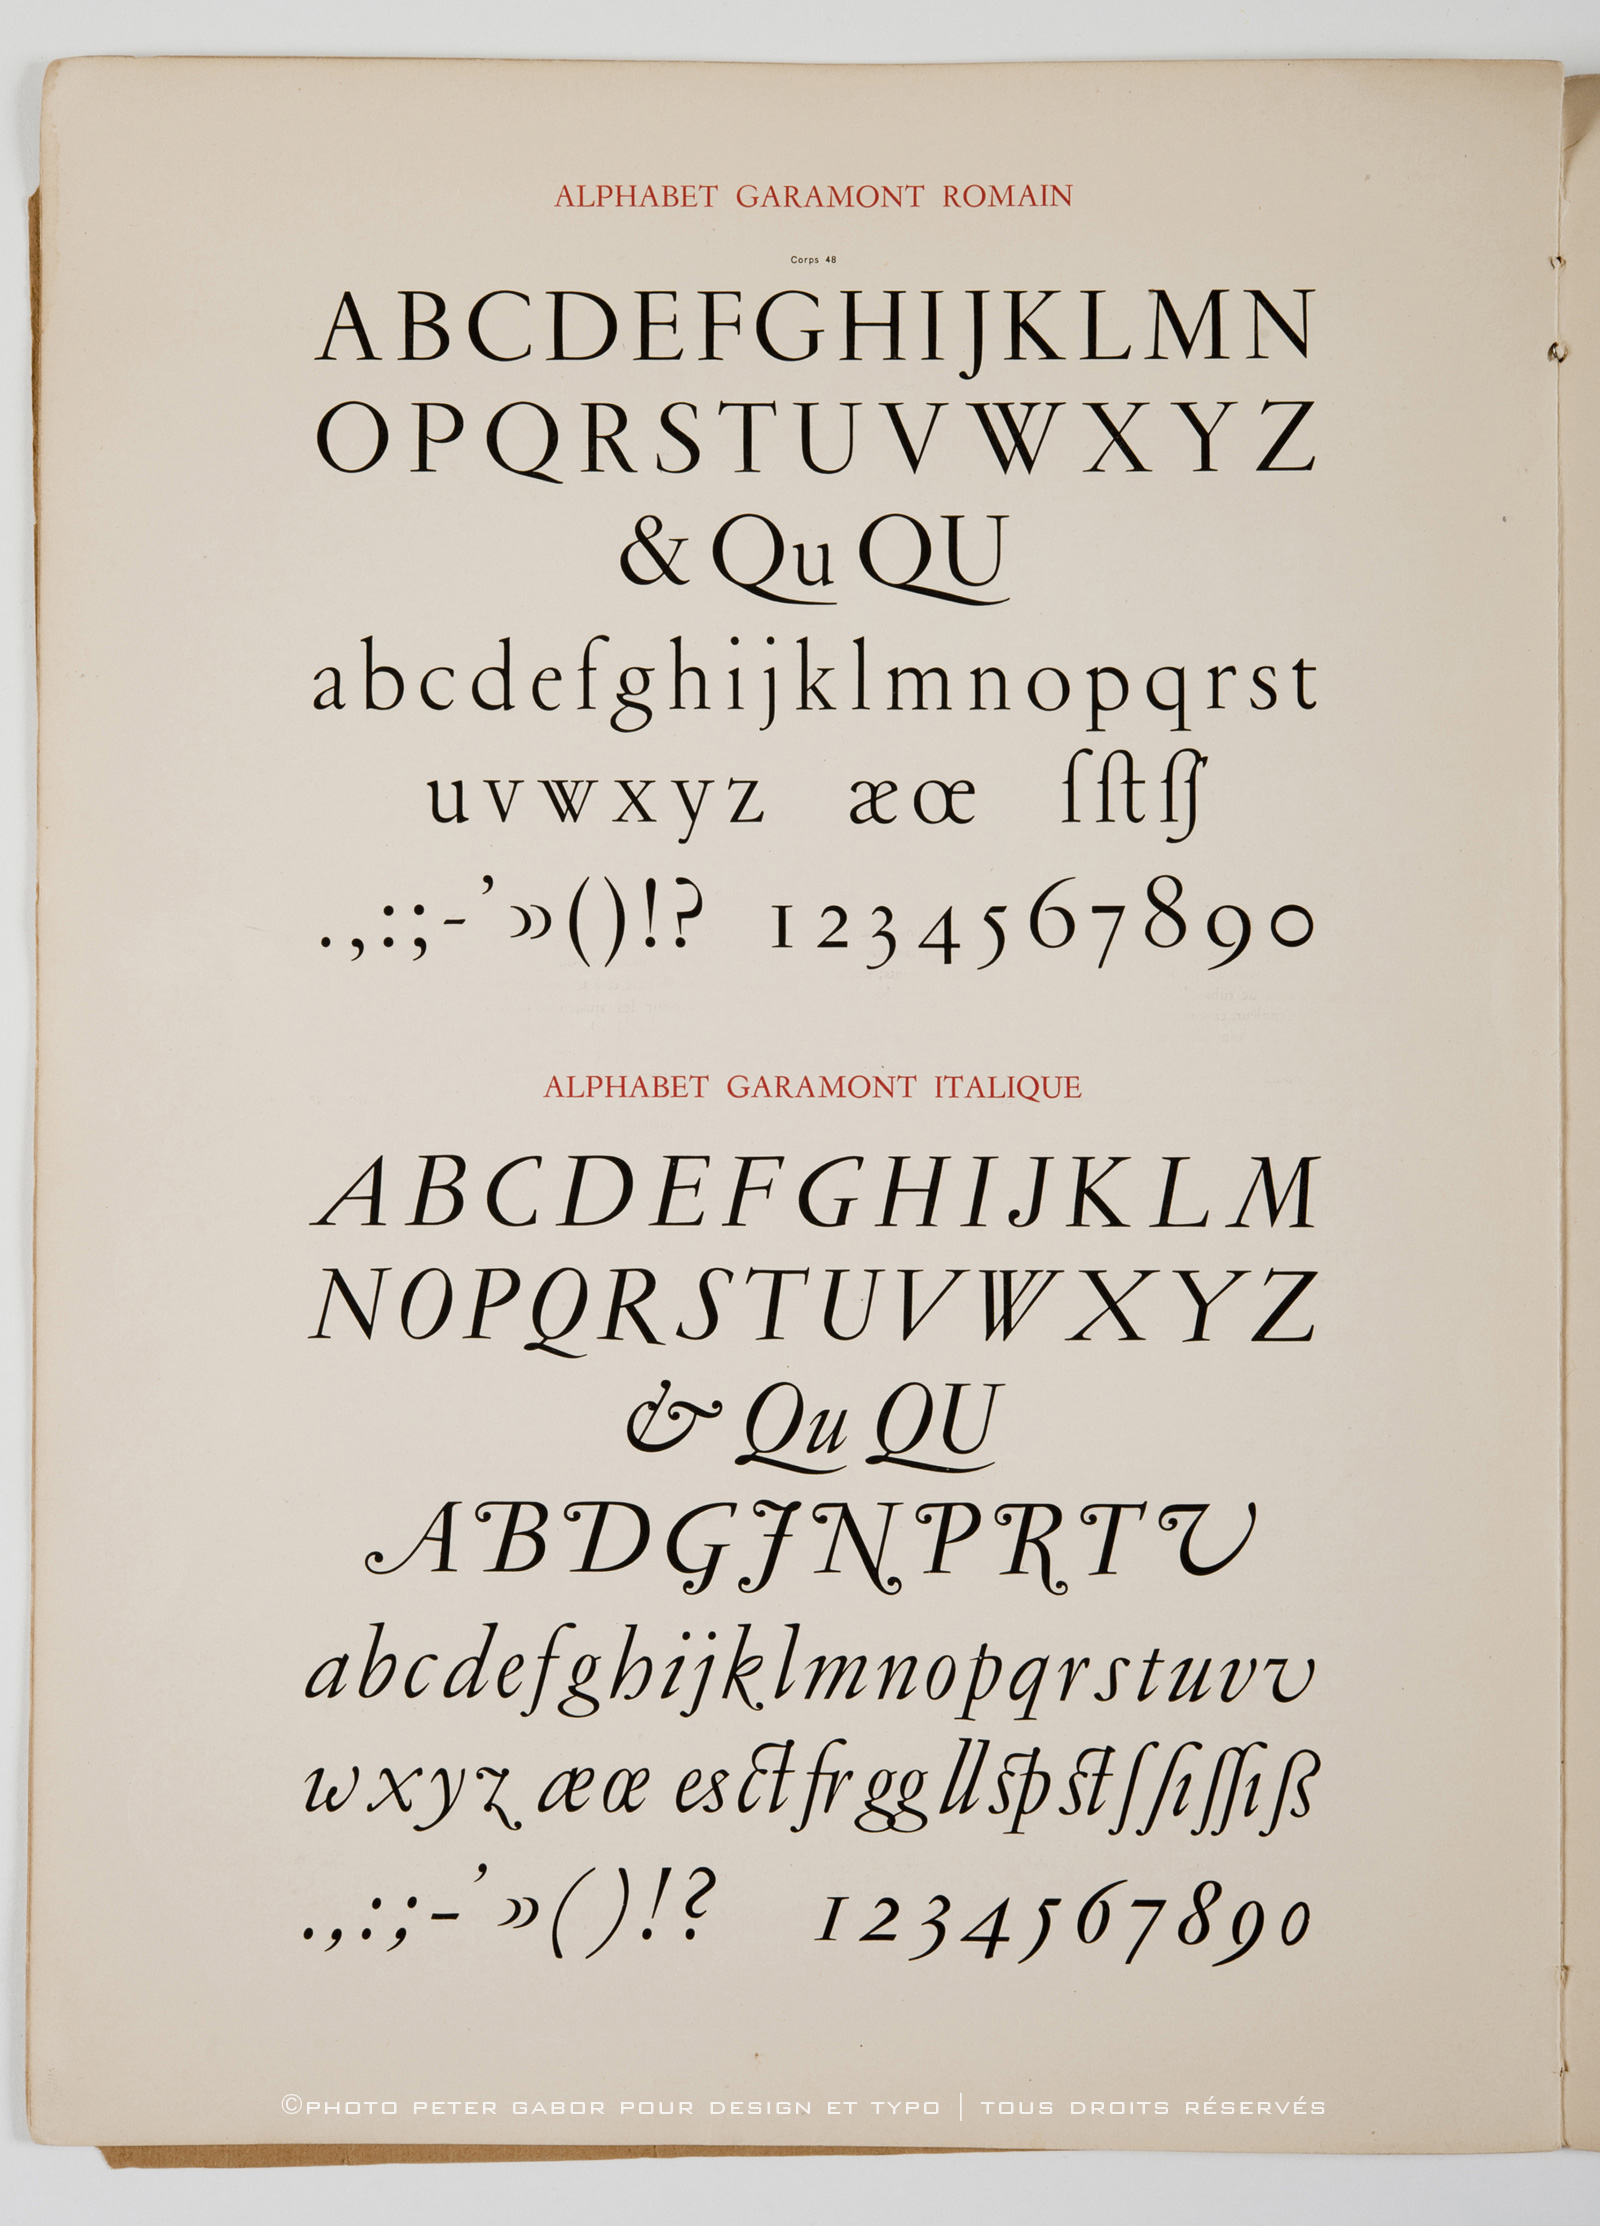 ALPHABET GARAMONT ROMAIN
Corps 48
ABCDEFGHIJKLMN
OPQRSTUVWXYZ
& Qu QU
abcdefghijklmnopqrst
uvwxyz æœ ſ ſt ſſ
.,:;-’»()!? 1234567890
ALPHABET GARAMONT ITALIQUE
ABCDEFGHIJKLM
NOPQRSTUVWXYZ
& Qu QU
ABDGJNPRTV
abcdefghijklmnopqrstuvv
wxyz æœ es ct fr gg ll sp st ſ ſi ſſi ß
.,:;-’»()!? 1234567890
©PHOTO PETER GABOR POUR DESIGN ET TYPO | TOUS DROITS RÉSERVÉS